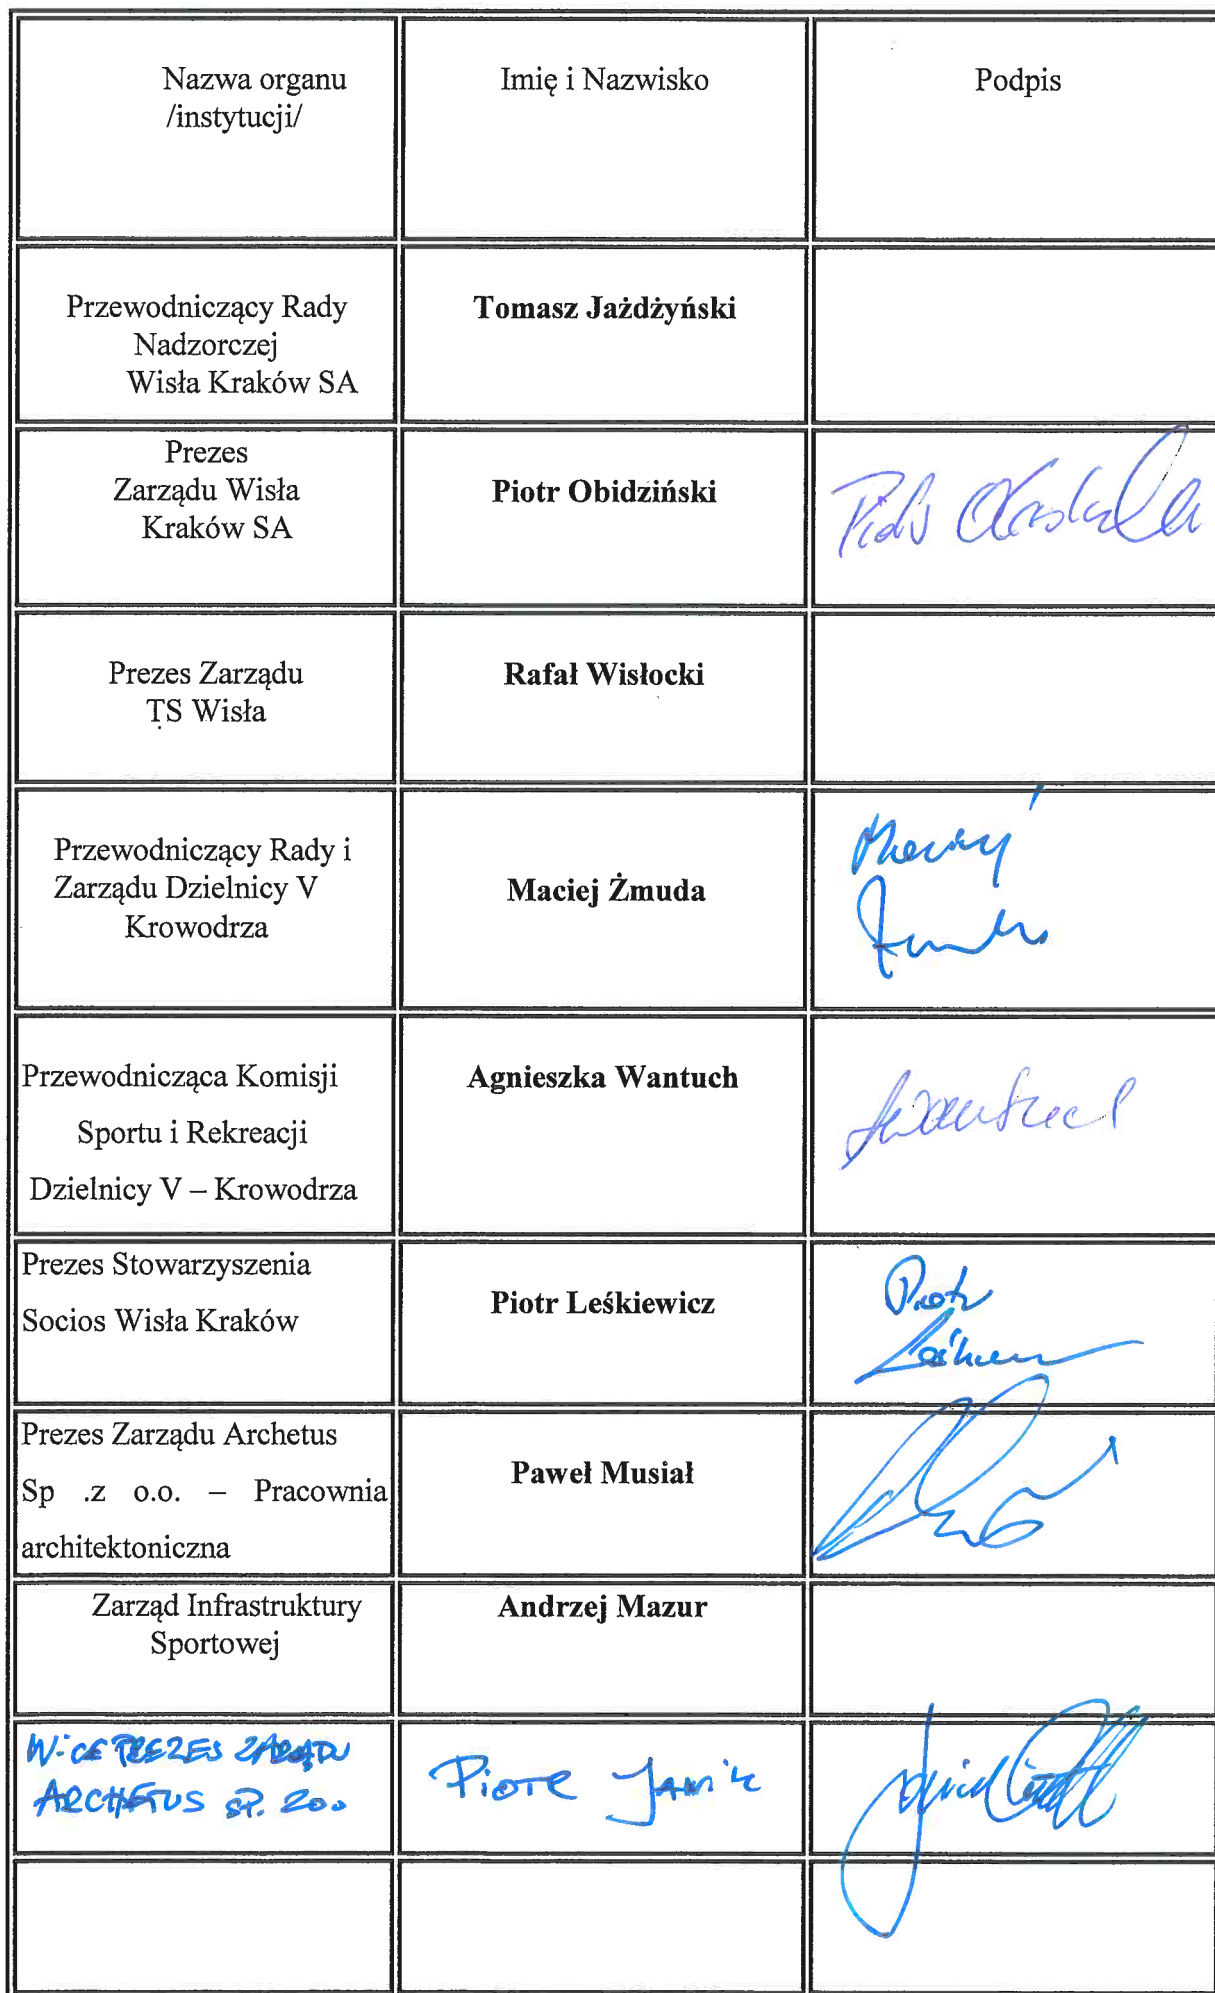 Nazwa organu
/instytucji/
Imię i Nazwisko
Podpis
Przewodniczący Rady
Nadzorczej
Wisła Kraków SA
Tomasz Jażdżyński
Prezes
Zarządu Wisła
Kraków SA
Piotr Obidziński
Prezes Zarządu
TS Wisła
Rafał Wisłocki
Przewodniczący Rady i
Zarządu Dzielnicy V
Krowodrza
Maciej Żmuda
Maciej
Przewodnicząca Komisji
Sportu i Rekreacji
Dzielnicy V – Krowodrza
Agnieszka Wantuch
Prezes Stowarzyszenia
Socios Wisła Kraków
Piotr Leśkiewicz
Piotr
Prezes Zarządu Archetus
Sp .z o.o. – Pracownia
architektoniczna
Paweł Musiał
Zarząd Infrastruktury
Sportowej
Andrzej Mazur
WICEPREZES ZARZĄDU
ARCHETUS SP. ZOO
PIOTR JANIK